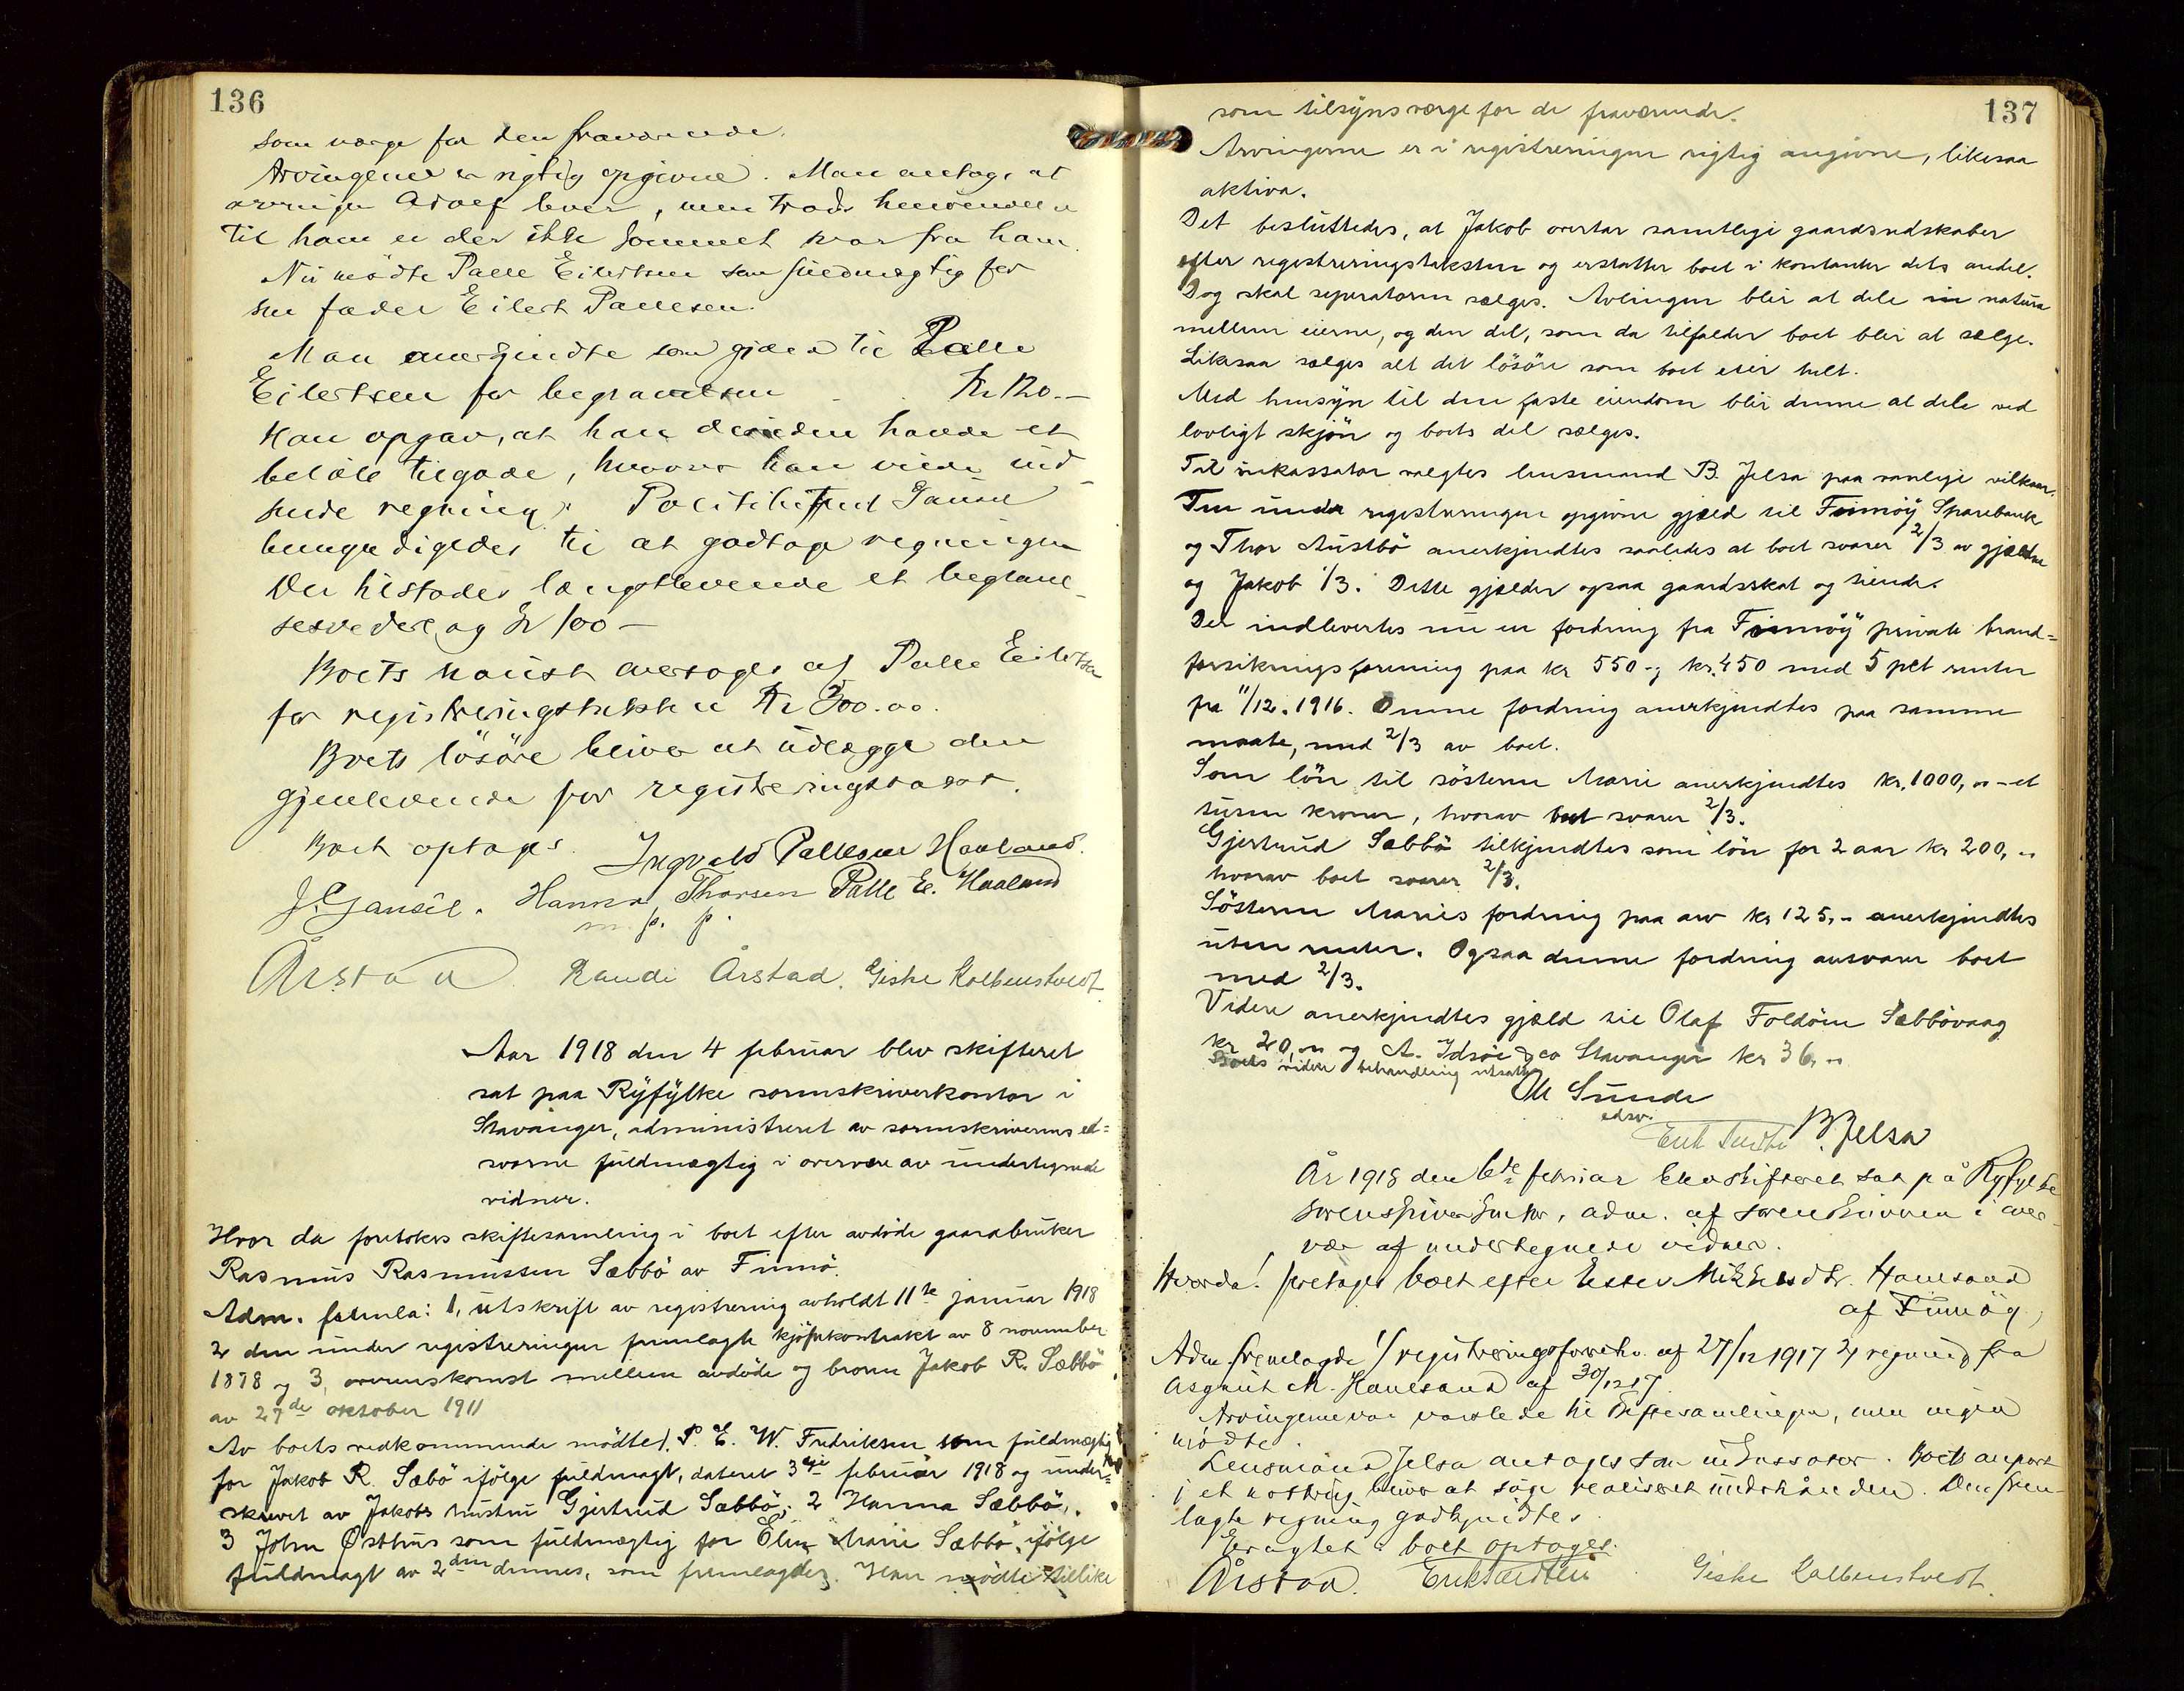 136
som værge for den fraværende.
Arvingene er rigtig opgivne. Man antog, at
arvingen Adolf lever, men trods henvendelse
til ham er der ikke kommet svar fra ham.
Nu mødte Palle Eilertsen som fuldmægtig for
sin fader Eilert Pallesen.
Man anerkjendte som gjæld til Palle
Eilertsen for begravelsen Kr 120.-
Han opgav, at han desuden havde et
beløb tilgode, hvorover han vilde ind-
sende regning. Politibetjent Gausel
bemyndigedes til at godtage regningen
Der tilstodes længstlevende et begravel-
sesvederlag Kr 100 -
Boets naust overtoges af Palle Eilertsen
for registreringstaksten Kr 300.00.
Boets løsøre bliver at udlægge den
gjenlevende for registreringstaxt.
Boet optages. Ingvald Pallesen Haaland.
J. Gausel. Hanna Thorsen Palle E. Haaland
m. p. p.
Årstad Randi Årstad. Giske Kolbenstvedt.
Aar 1918 den 4 februar blev skifteret
sat paa Ryfylke sorenskriverkontor i
Stavanger, administreret av sorenskriverens ed=
svorne fuldmægtig i overvære av undertegnede
vidner.
Hvor da foretokes skiftesamling i boet efter avdøde gaardbruker
Rasmus Rasmussen Sæbbø av Finnø.
Adm. fremla: 1, utskrift av registrering avholdt 11te januar 1918
2 den under registreringen fremlagte kjøpekontrakt av 8 november
1878 og 3, overenskomst mellem avdøde og broren Jakob R. Sæbbø
av 27de oktober 1911
Av boets vedkommende mødte 1. P. E. W. Fredriksen som fuldmægtig
for Jakob R. Sæbø ifølge fuldmagt, dateret 3dje februar 1918 og under=
skrevet av Jakobs hustru Gjertrud Sæbbø, 2 Hanna Sæbbø,
3 John Østhus som fuldmægtig for Elen Marie Sæbbø, ifølge
fuldmagt av 2den dennes, som fremlagdes. Han mødte tillike
137
som tilsynsværge for de fraværende.
Arvingerne er i registreringen rigtig angivne, likesaa
aktiva.
Det besluttedes, at Jakob overtar samtlige gaardsredskaber
efter registreringstaksten og erstatter boet i kontanter dets andel.
Dog skal seperatoren sælges. Avlingen blir at dele in natura
mellem eierne, og den del, som da tilfalder boet blir at sælge.
Likesaa sælges alt det løsøre som boet eier helt.
Med hensyn til den faste eiendom blir denne at dele ved
lovligt skjøn og boets del sælges.
Til inkassator valgtes lensmand B. Jelsa paa vanlige vilkaar.
Den under registreringen opgivne gjæld til Finnøy Sparebank
og Thor Austbø anerkjendtes saaledes at boet svarer 2/3 av gjælden
og Jakob 1/3. Dette gjælder ogsaa gaardsskat og tiende.
Der indlevertes nu en fordring fra Finnøy private brand=
forsikringsforening paa kr 550 -; kr. 450 med 5 pct renter
fra 11/12. 1916. Denne fordring anerkjendtes paa samme
maate, med 2/3 av boet.
Som løn til søsteren Marie anerkjendtes kr. 1000, - et
tusen kroner, hvorav boet svarer 2/3.
Gjertrud Sæbbø tilkjendtes som løn for 2 aar kr 200, -
hvorav boet svarer 2/3.
Søsteren Maries fordring paa arv kr 125, - anerkjendtes
uten renter. Ogsaa denne fordring ansvarer boet
med 2/3.
Videre anerkjendtes gjæld til Olaf Foldøen Sæbbøvaag
kr 20, og A. Idsøe & co Stavanger kr 36,
Boets videre behandling utsattes
Ole Sunde
edsv.
B Jelsa
År 1918 den 6te februar blev skifteret sat på Ryfylke
sorenskriverkontor, adm. af sorenskriveren i over-
vær af undertegnede vidner.
Hvorda! foretoges boet efter Ester Mikkelsdtr. Haulsand
af Finnøy.
Adm. fremlagde 1/ registreringsforretn. af 27/12 1917 2, regning fra
Asgaut M. Haulsand af 30/12 17.
Arvingerne var varslede til skiftesamlingen, men ingen
mødte.
Lensmand Jelsa antoges som inkassator. Boets anpart
i et nøstrug bliver at søge realiseret underhånden. Den frem-
lagte regning godkjendtes.
Eragtet: boet optoges.
Årstad. Giske Kolbenstvedt.